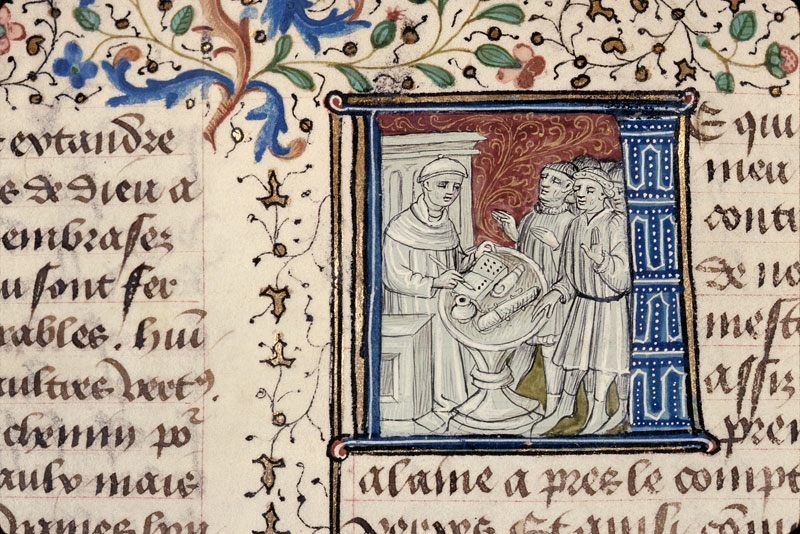 extandre
s de dieu a
embrases
u sont fer
rables. hui
aultres vert
chemin po
aulx mais
E qui
meu
conti
de no
mest
assiz
pren
alaine apres le compt